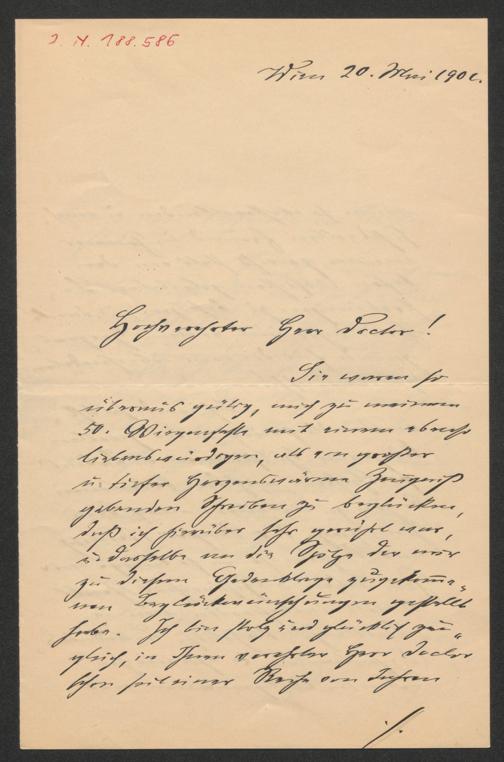 J. N. 188.586
Wien 20. Mai 1901.
Hochverehrter Herr Doctor!
Sie waren so
überaus gütig, mich zu meinem
50. Wiegenfeste mit einem ebenso
liebenswürdigen, als von großer
u. tiefer Herzenswärme Zeugniß
gebenden Schreiben zu beglücken,
daß ich hierüber sehr gerührt war,
u. dasselbe an die Spitze der mir
zu diesem Gedenktage zugekomme-
nen Beglückwünschungen gestellt
habe. Ich bin stolz und glücklich zu-
gleich, in Ihnen verehrter Herr Doctor
schon seit einer Reihe von Jahren
./.